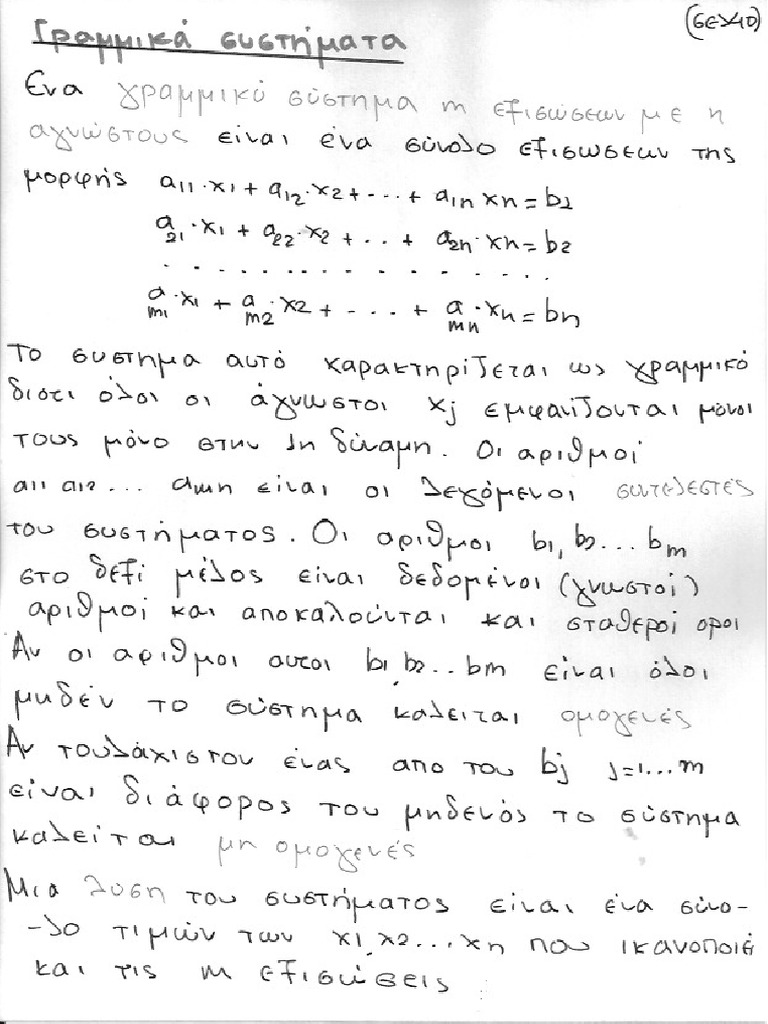 (σελ 40)
Γραμμικά συστήματα
Ένα γραμμικό σύστημα m εξισώσεων με n
αγνώστους είναι ένα σύνολο εξισωσεων της
μορφής a11·x1 + a12·x2 + ... + a1n xn = b1
a21·x1 + a22·x2 + ... + a2n·xn = b2
. . . . . . . . . . . . . . . .
am1·x1 + am2·x2 + .... + amn·xn = bn
Το συστημα αυτό χαρακτηρίζεται ως γραμμικό
διοτι όλοι οι άγνωστοι xj εμφανίζονται μόνοι
τους μόνο στην 1η δύναμη. Οι αριθμοί
a11 a12... amn είναι οι λεγόμενοι συντελεστές
του συστήματος. Οι αριθμοι b1, b2...bm
στο δεξί μέλος είναι δεδομένοι (γνωστοί)
αριθμοί και αποκαλούνται και σταθεροί οροι
Αν οι αριθμοι αυτοι b1, b2...bm είναι όλοι
μηδέν το σύστημα καλειται ομογενές
Αν τουλάχιστον ένας απο του bj j=1...m
είναι διάφορος του μηδενός το σύστημα
καλείται μη ομογενές
Μια λυση του συστήματος είναι ένα σύνο-
-λο τιμών των x1, x2...xn που ικανοποιέ
και τις m εξισώσεις